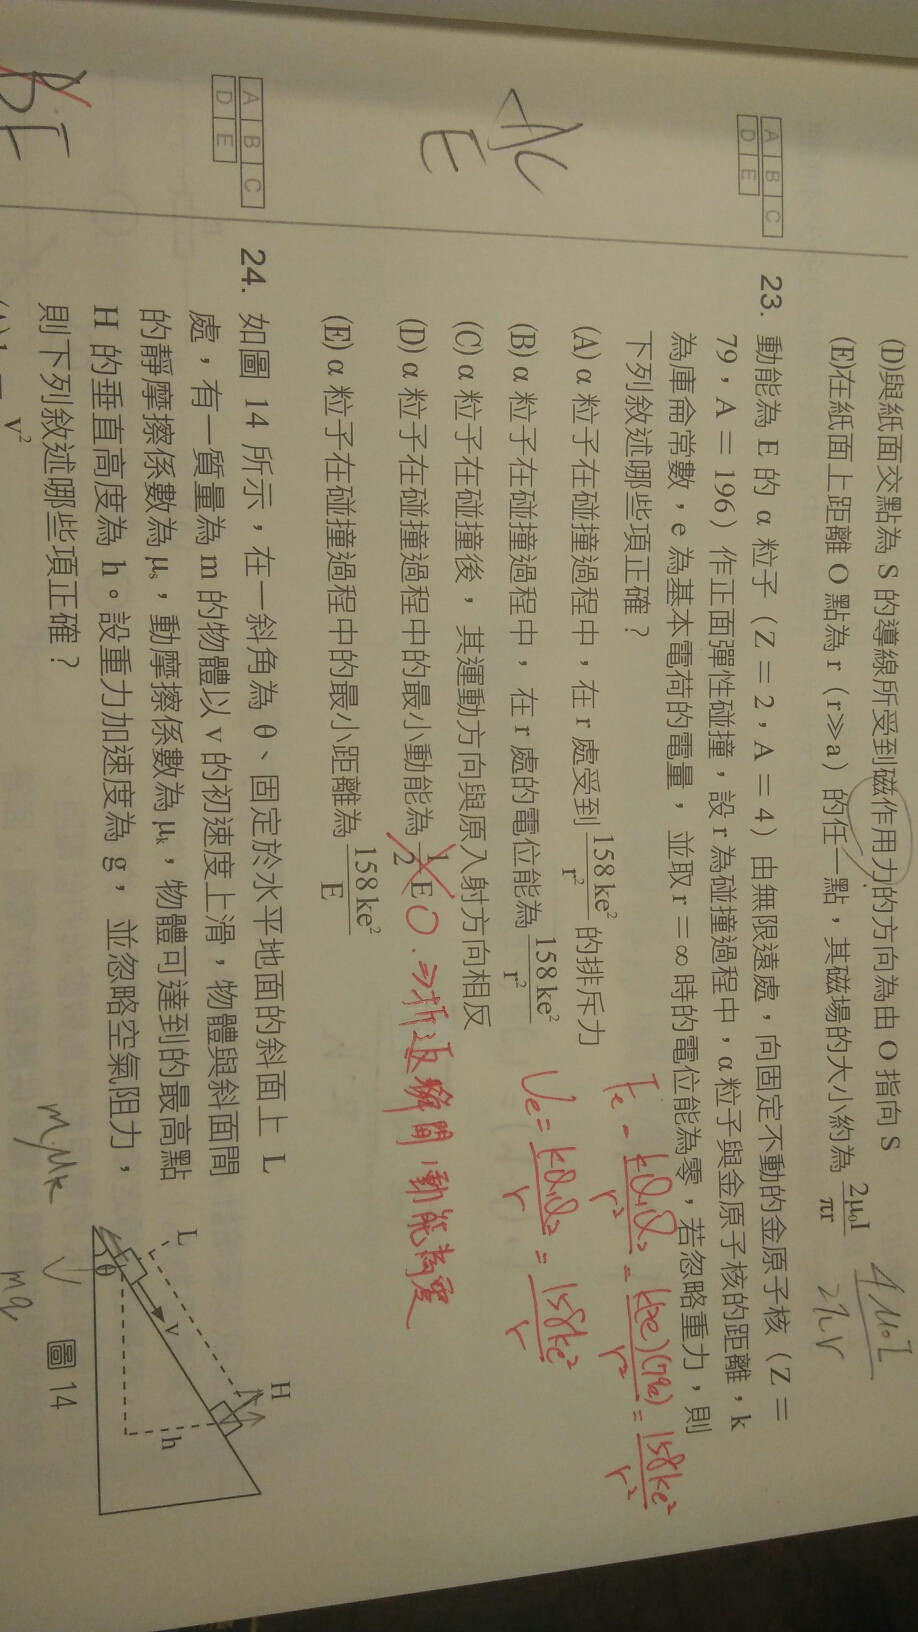 (D)與紙面交點為 S 的導線所受到磁作用力的方向為由 O 指向 S
(E)在紙面上距離 O 點為 r（r≫a）的任一點，其磁場的大小約為 2μ₀I/πr
4μ₀I/2πr
A B C
D E
AC
E
23. 動能為 E 的 α 粒子（Z＝2，A＝4）由無限遠處，向固定不動的金原子核（Z＝
79，A＝196）作正面彈性碰撞，設 r 為碰撞過程中，α 粒子與金原子核的距離，k
為庫侖常數，e 為基本電荷的電量，並取 r＝∞ 時的電位能為零，若忽略重力，則
下列敘述哪些項正確？
(A) α 粒子在碰撞過程中，在 r 處受到 158 ke²/r² 的排斥力
Fe = kQ₁Q₂/r² = k(2e)(79e)/r² = 158ke²/r²
(B) α 粒子在碰撞過程中，在 r 處的電位能為 158 ke²/r²
Ue = kQ₁Q₂/r = 158ke²/r
(C) α 粒子在碰撞後，其運動方向與原入射方向相反
(D) α 粒子在碰撞過程中的最小動能為 1/2 E 0. ⇒折返瞬間,動能為零
(E) α 粒子在碰撞過程中的最小距離為 158 ke²/E
A B C
D E
BE
24. 如圖 14 所示，在一斜角為 θ、固定於水平地面的斜面上 L
處，有一質量為 m 的物體以 v 的初速度上滑，物體與斜面間
的靜摩擦係數為 μs，動摩擦係數為 μk，物體可達到的最高點
H 的垂直高度為 h。設重力加速度為 g，並忽略空氣阻力，
則下列敘述哪些項正確？
L
v
θ
H
h
圖 14